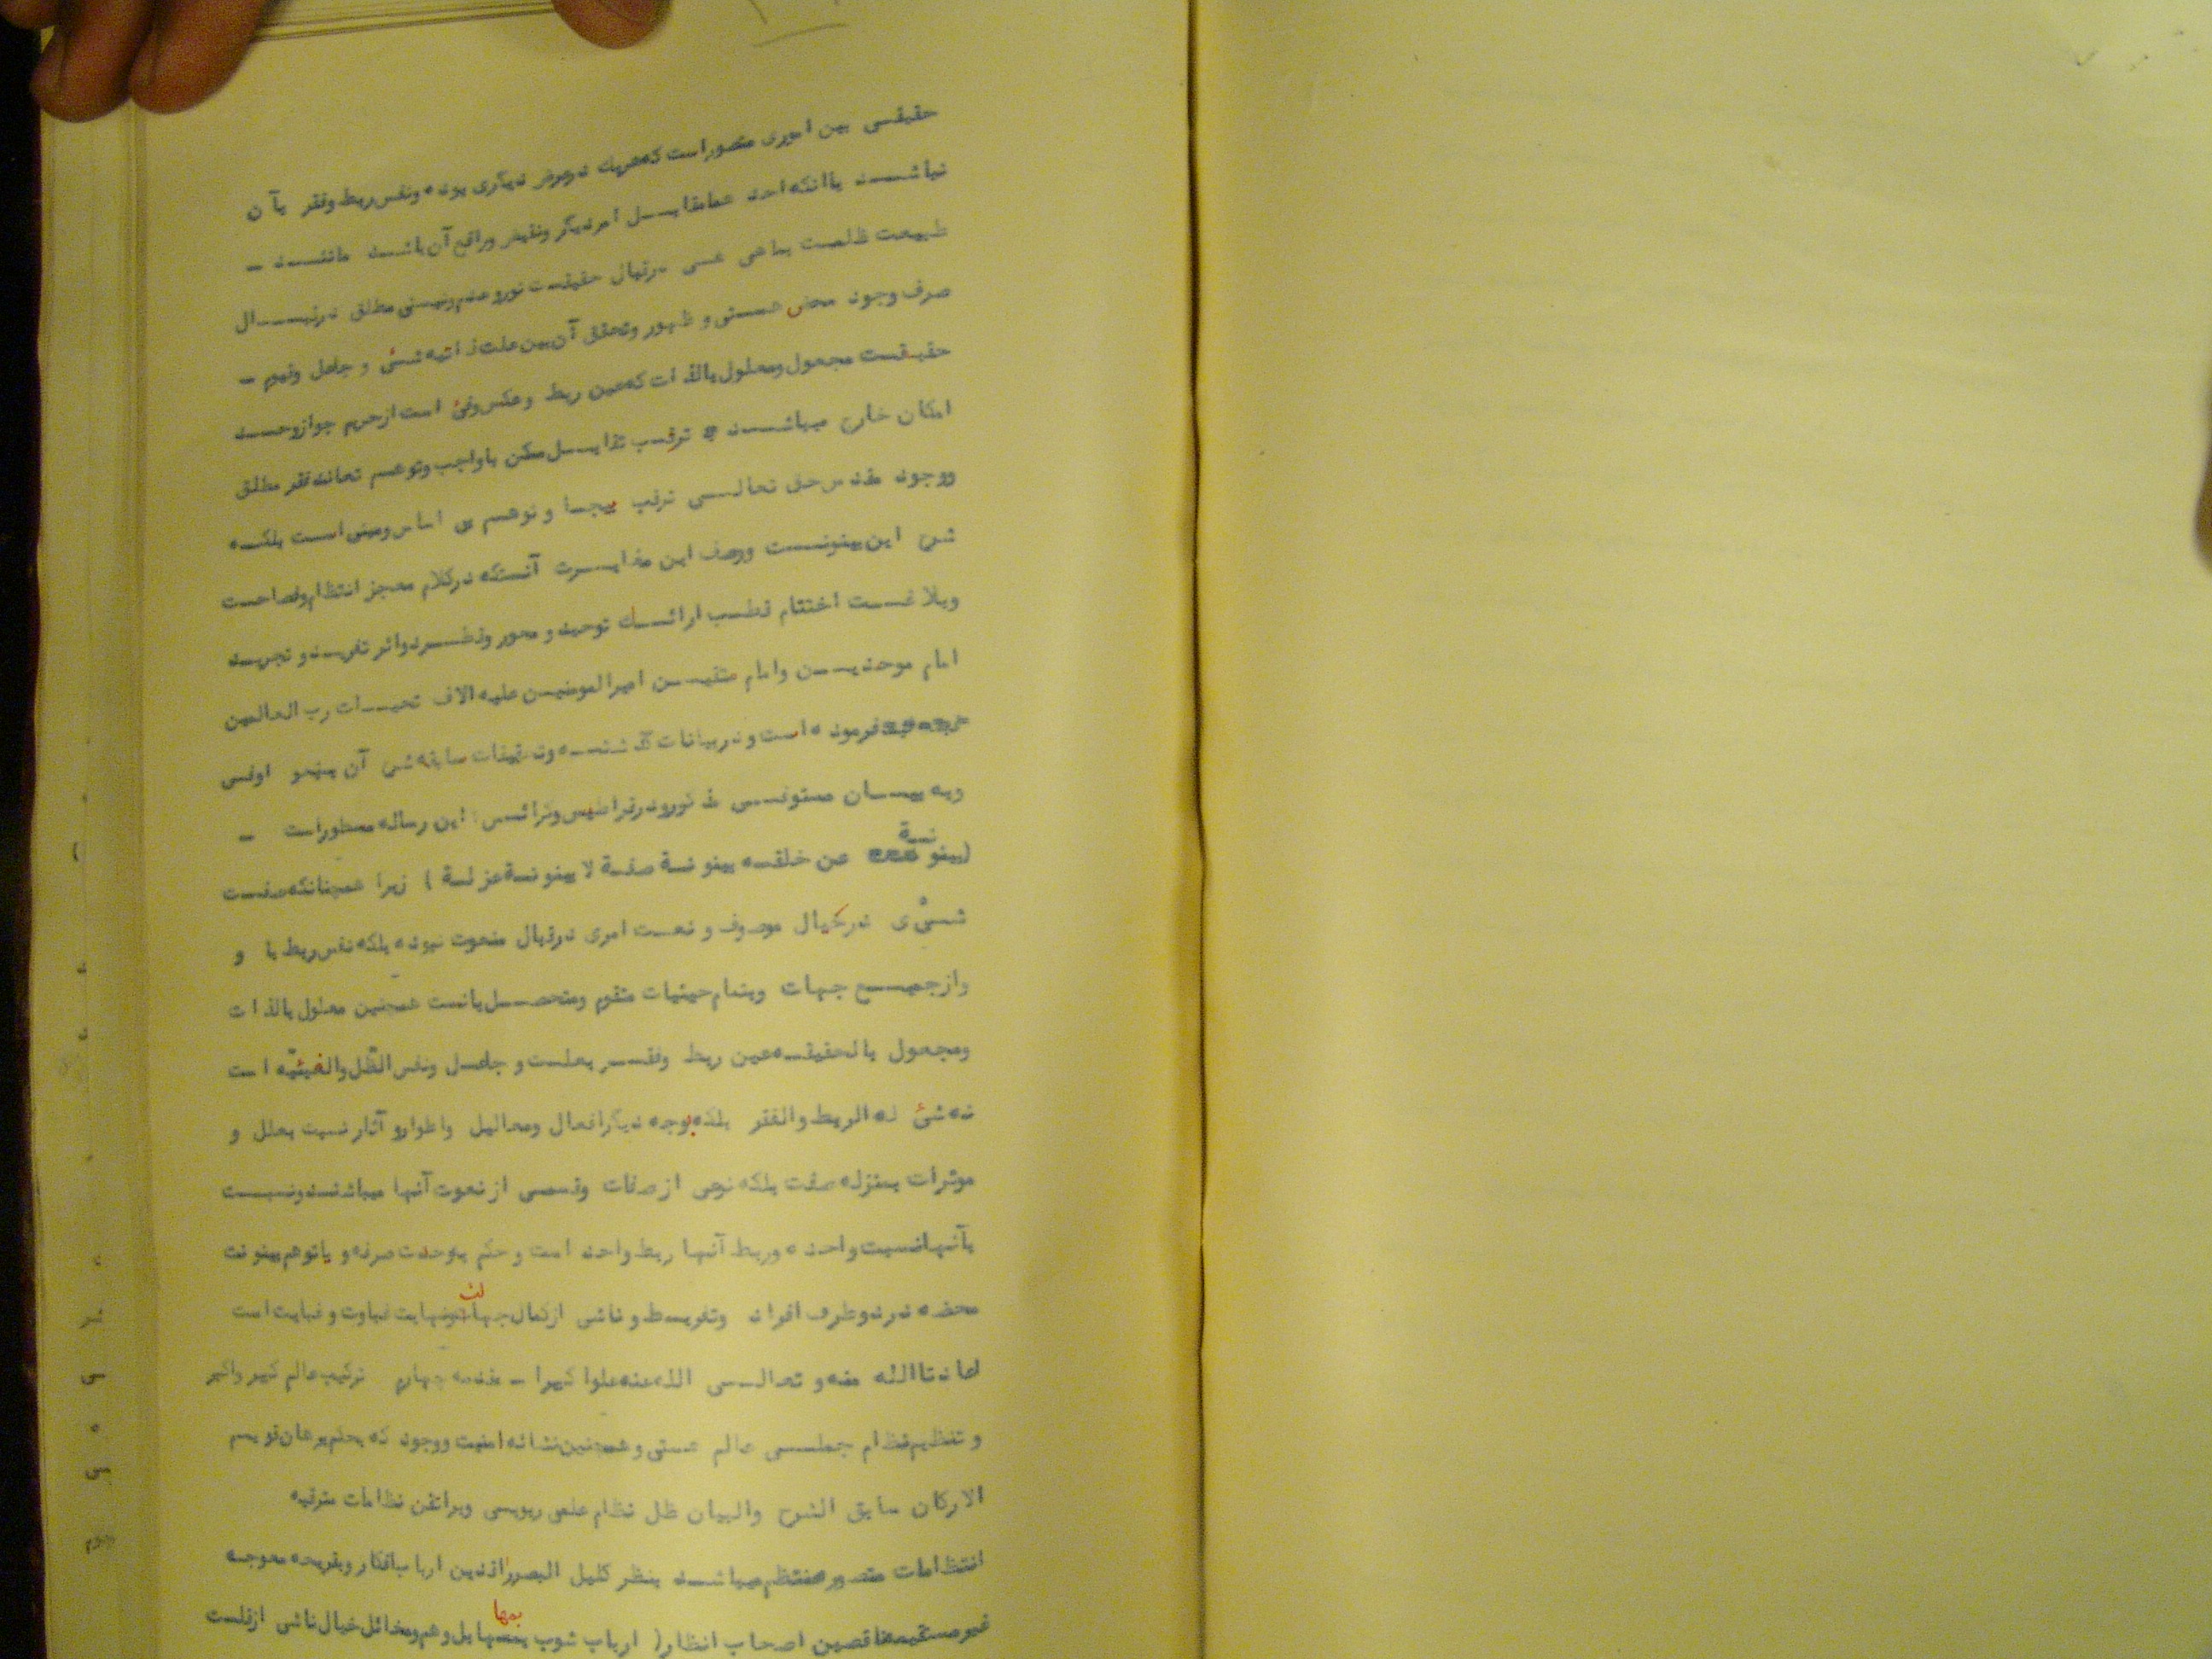 حقیقی بین اموری متصور است که هریك در عرض دیگری بوده ونفس ربط وفقر بآن
نباشند یا انکه احد هما مقابل امر دیگر ونقیض ورافع آن باشد مانند -
طبیعت ظلمت بما هی هی در قبال حقیقت نور وعدم ونیستی مطلق در قبال
صرف وجود محض هستی و ظهور وتحقق آن بین علت ذاتیه شئی و جاعل وقیوم -
حقیقت مجعول ومعلول بالذات که عین ربط وعکس وفئ است از حریم جواز وحد
امکان خارج میباشد ترقب تقابل ممکن با واجب وتوهم تعاند فقر مطلق
ووجود مقدس حق تعالی ترقب بیجا و توهم بی اساس ومبنی است بلکه
شرح این بینونت ووصف این مغایرت آنستکه در کلام معجز انتظام وفصاحت
وبلاغت اختتام قطب ارائك توحید و محور وقطر دوائر تفرید و تجرید
امام موحدین وامام متقین امیرالمومنین علیه الاف تحیات رب العالمین
فرموده است و در بیانات گذشته وتدقیقات سابقه شرح آن بنحو اوفی
وبه بیان مستوفی مذکور ودر قراطیس وکرائس این رساله مسطور است -
(بینونة عن خلقه بینونة صفة لا بینونة عزلة ) زیرا همچنانکه صفت
شیئی در خیال موصوف و نعت امری در قبال منعوت نبوده بلکه نفس ربط با و
واز جمیع جهات وبتمام حیثیات متقوم ومتحصل بانست همچنین معلول بالذات
ومجعول بالحقیقه عین ربط وفقر بعلت و جاعل ونفس الظل والفیئیه است
نه شئ له الربط والفقر بلکه بوجه دیگر افعال ومعالیل واطوار و آثار نسبت بعلل و
موثرات بمنزله صفت بلکه نوعی از صفات وقسمی از نعوت آنها میباشند ونسبت
بآنها نسبت واحده وربط آنها ربط واحد است و حکم بوحدت صرفه و یا توهم بینونت
محضه در دو طرف افراط وتفریط و ناشی از کمال جهالت ونهایت غباوت و غبایت است
اعاذنا الله منه و تعالی الله عنه علوا کبیرا - مقدمه چهارم ترکیب عالم کبیر واکبر
و تنظیم نظام جملی عالم هستی و همچنین نشائه امنیت ووجود که بحکم برهان قویم
الارکان سابق الشرح والبیان ظل نظام علمی ربوبی وبراتقن نظامات مترقبه
انتظامات متصوره منتظم میباشد بنظر کلیل البصر اقدین ارباب افکار وبقریحه معوجه
غیر مستقیمه ناقصین اصحاب انظار ( ارباب شوب بمهابل وهم ومخائل خیال ناشی از قلت